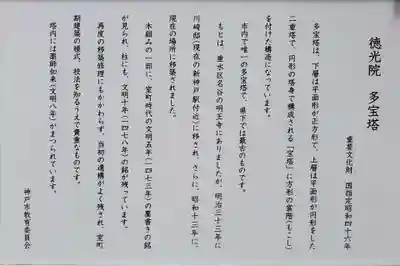 徳光院 多宝塔
重要文化財 国指定昭和四十六年
多宝塔は、下層は平面形が正方形で、上層は平面形が円形をした
二重塔で、円形の塔身で構成される「宝塔」に方形の裳階(もこし)
を付けた構造になっています。
市内で唯一の多宝塔で、県下では最古のものです。
もとは、垂水区名谷の明王寺にありましたが、明治三十三年に
川崎邸(現在の新神戸駅付近)に移され、さらに、昭和十三年に、
現在の場所に移築されました。
木組みの一部に、室町時代の文明五年(一四七三年)の墨書きの銘
が見られ、柱にも、文明十年(一四七八年)の銘が残っています。
再度の移築修理にもかかわらず、当初の遺構がよく残され、室町
期建築の様式、技法を知るうえで貴重なものです。
塔内には薬師如来(文明八年)がまつられています。
神戸市教育委員会